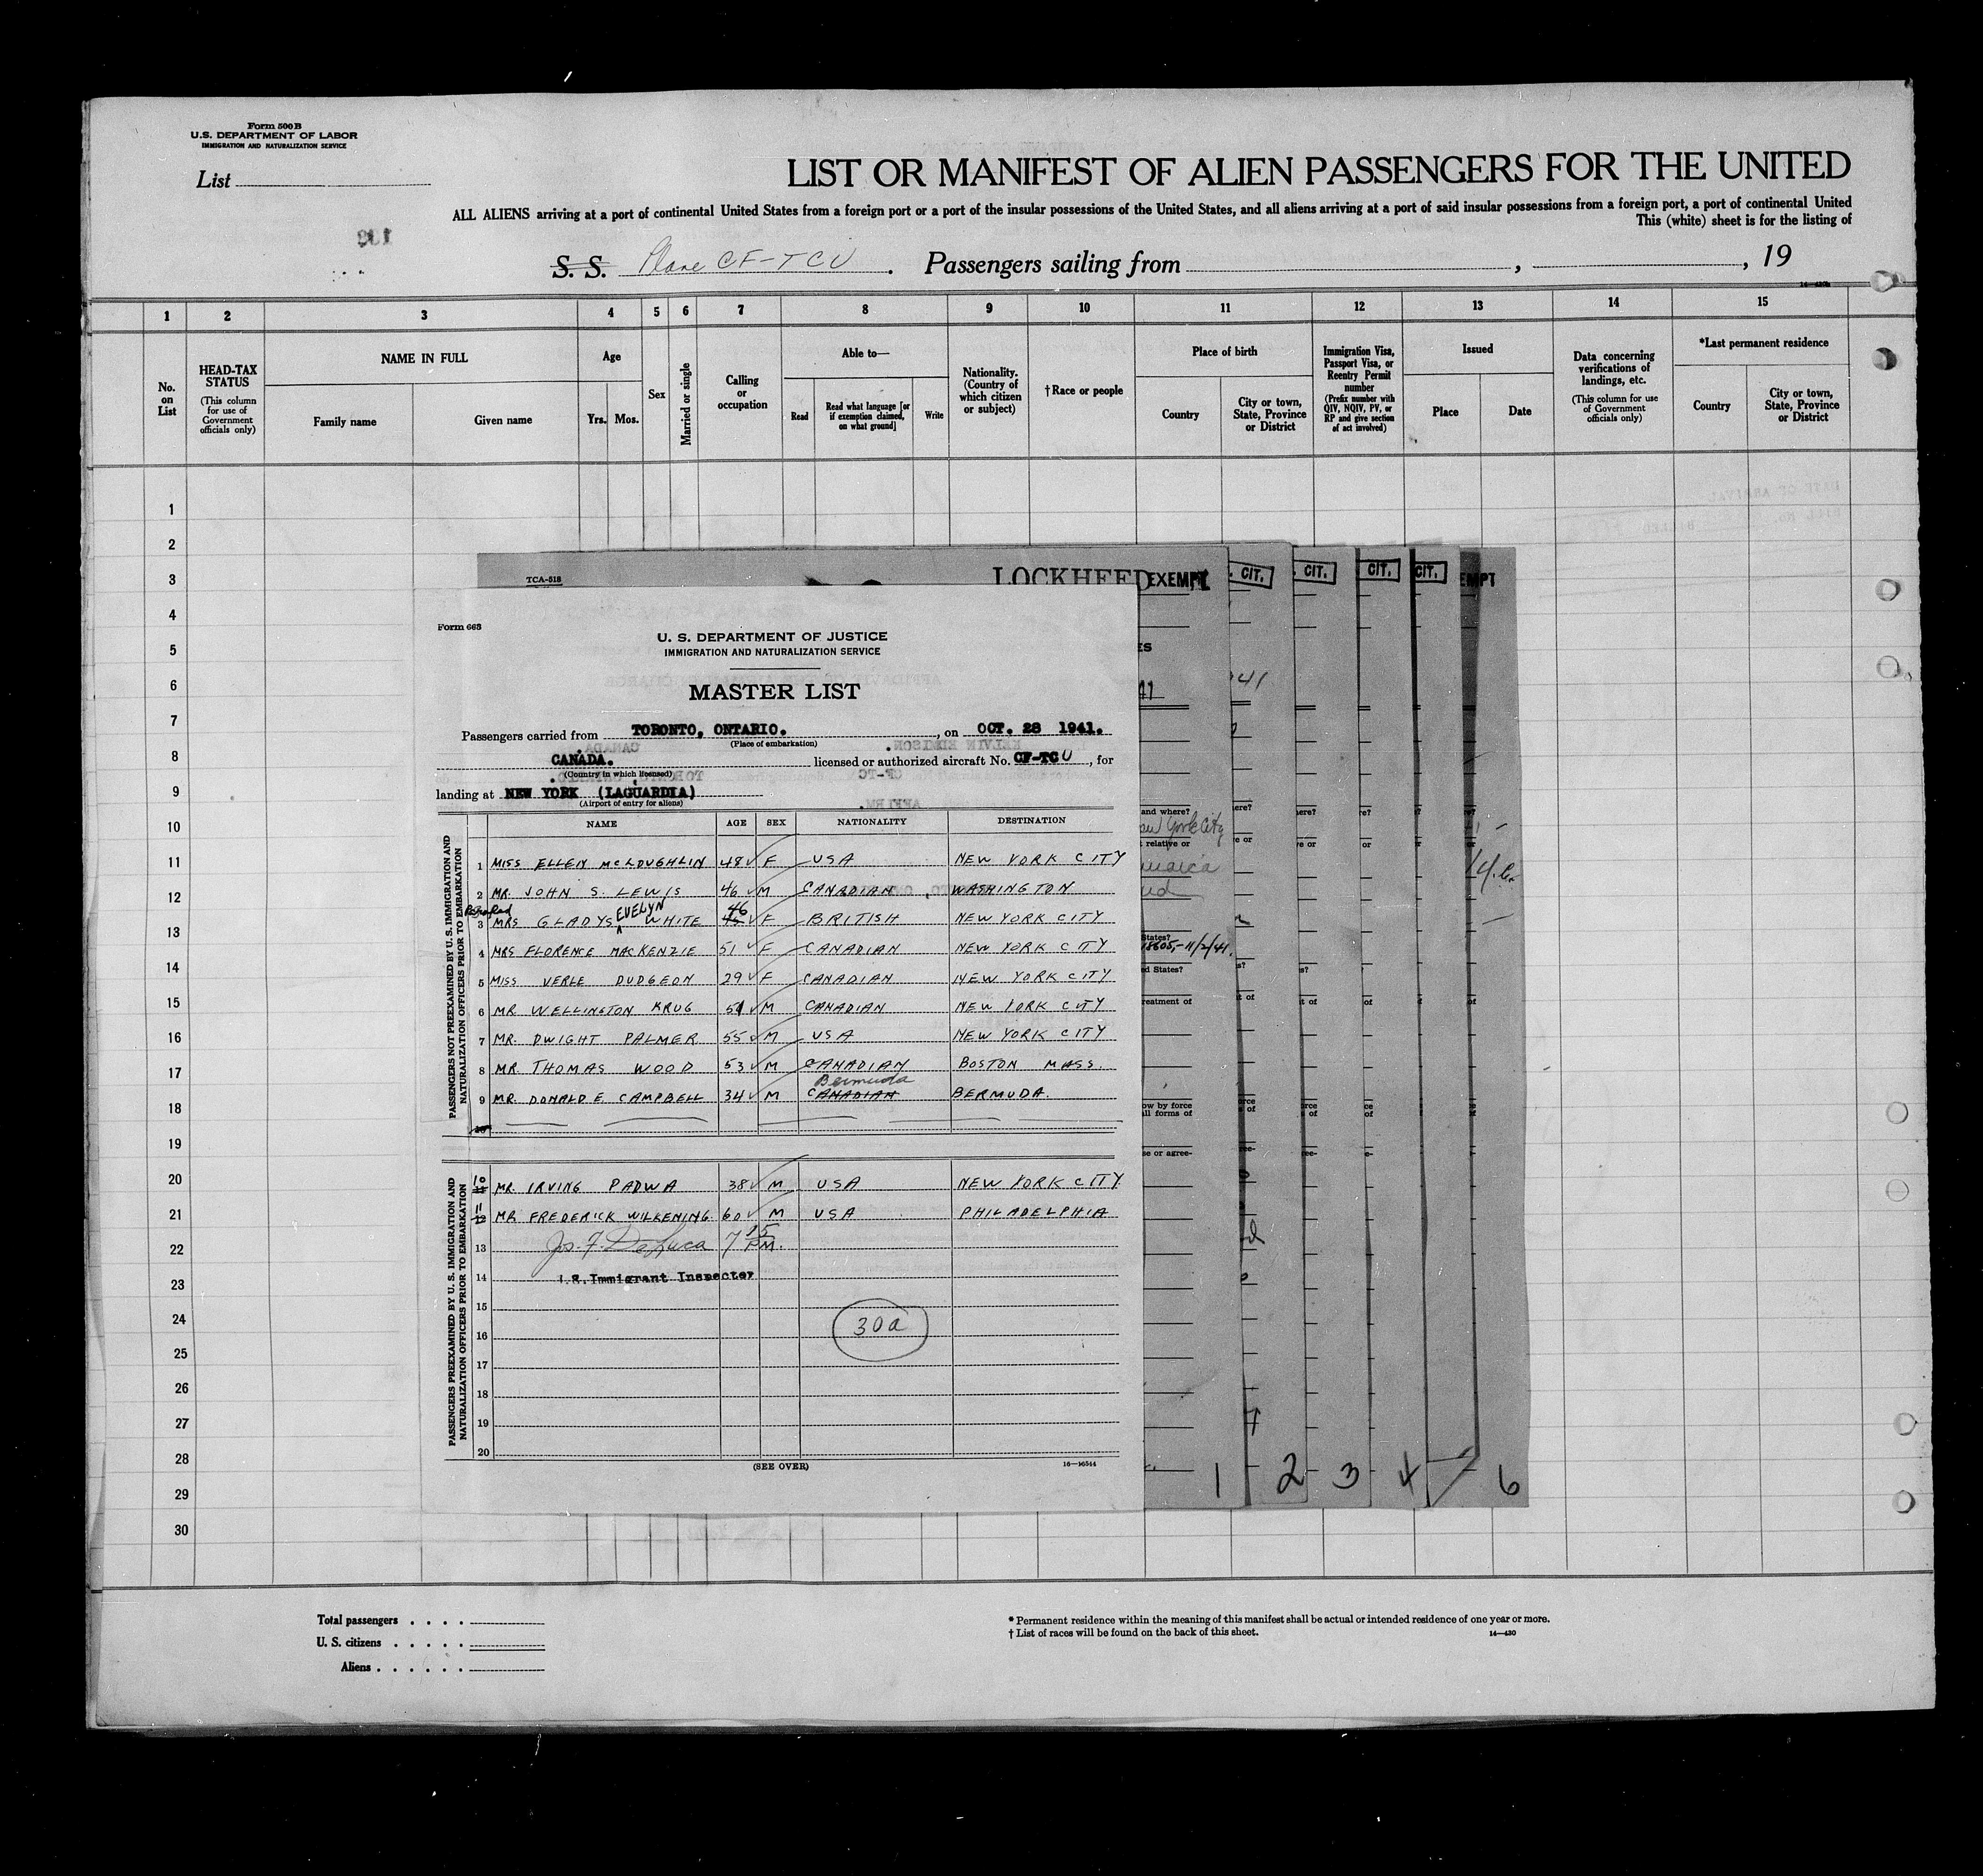 Form 500 B
U.S. DEPARTMENT OF LABOR
IMMIGRATION AND NATURALIZATION SERVICE
List
LIST OR MANIFEST OF ALIEN PASSENGERS FOR THE UNITED
ALL ALIENS arriving at a port of continental United States from a foreign port or a port of the insular possessions of the United States, and all aliens arriving at a port of said insular possessions from a foreign port, a port of continental United
This (white) sheet is for the listing of
S. S. Plane CF-TCU . Passengers sailing from , , 19
1 2 3 4 5 6 7 8 9 10 11 12 13 14 15
No. on List
HEAD-TAX STATUS
(This column for use of Government officials only)
NAME IN FULL
Family name Given name
Age
Yrs. Mos.
Sex
Married or single
Calling or occupation
Able to—
Read
Read what language [or if exemption claimed, on what ground]
Write
Nationality. (Country of which citizen or subject)
† Race or people
Place of birth
Country
City or town, State, Province or District
Immigration Visa, Passport Visa, or Reentry Permit number
(Prefix number with QIV, NQIV, PV, or RP and give section of act involved)
Issued
Place Date
Data concerning verifications of landings, etc.
(This column for use of Government officials only)
*Last permanent residence
Country
City or town, State, Province or District
1
2
3
4
5
6
7
8
9
10
11
12
13
14
15
16
17
18
19
20
21
22
23
24
25
26
27
28
29
30
TCA-518
LOCKHEED
EXEMPT CIT. CIT. CIT. CIT. EMPT
Form 663
U. S. DEPARTMENT OF JUSTICE
IMMIGRATION AND NATURALIZATION SERVICE
MASTER LIST
Passengers carried from TORONTO, ONTARIO. , on OCT. 28 1941.
(Place of embarkation)
CANADA. licensed or authorized aircraft No. CF-TCU , for
(Country in which licensed)
landing at NEW YORK (LAGUARDIA)
(Airport of entry for aliens)
NAME AGE SEX NATIONALITY DESTINATION
PASSENGERS NOT PREEXAMINED BY U. S. IMMIGRATION AND NATURALIZATION OFFICERS PRIOR TO EMBARKATION
1 MISS ELLEN McLOUGHLIN 48 F USA NEW YORK CITY
2 MR. JOHN S. LEWIS 46 M CANADIAN WASHINGTON
3 MRS GLADYS EVELYN WHITE 46 F BRITISH NEW YORK CITY
4 MRS FLORENCE MACKENZIE 51 F CANADIAN NEW YORK CITY
5 MISS VERLE DUDGEON 29 F CANADIAN NEW YORK CITY
6 MR WELLINGTON KRUG 51 M CANADIAN NEW YORK CITY
7 MR. DWIGHT PALMER 55 M USA NEW YORK CITY
8 MR. THOMAS WOOD 53 M CANADIAN BOSTON MASS.
Bermuda
9 MR. DONALD E. CAMPBELL 34 M CANADIAN BERMUDA.
PASSENGERS PREEXAMINED BY U. S. IMMIGRATION AND NATURALIZATION OFFICERS PRIOR TO EMBARKATION
10 MR. IRVING PADWA 38 M USA NEW YORK CITY
11 MR FREDERICK WILKENING 60 M USA PHILADELPHIA
13 Jos. F. DeLuca 7 15 P.M.
14 Immigrant Inspector
15
16 30a
17
18
19
20
(SEE OVER)
16—16544
41
and where?
New York City
relative or
States?
18605,- 11/2/41.
ed States?
reatment of
ow by force
all forms of
se or agree-
1 2 3 4 6
Total passengers . . . .
U. S. citizens . . . . .
Aliens . . . . . .
* Permanent residence within the meaning of this manifest shall be actual or intended residence of one year or more.
† List of races will be found on the back of this sheet.
14—430